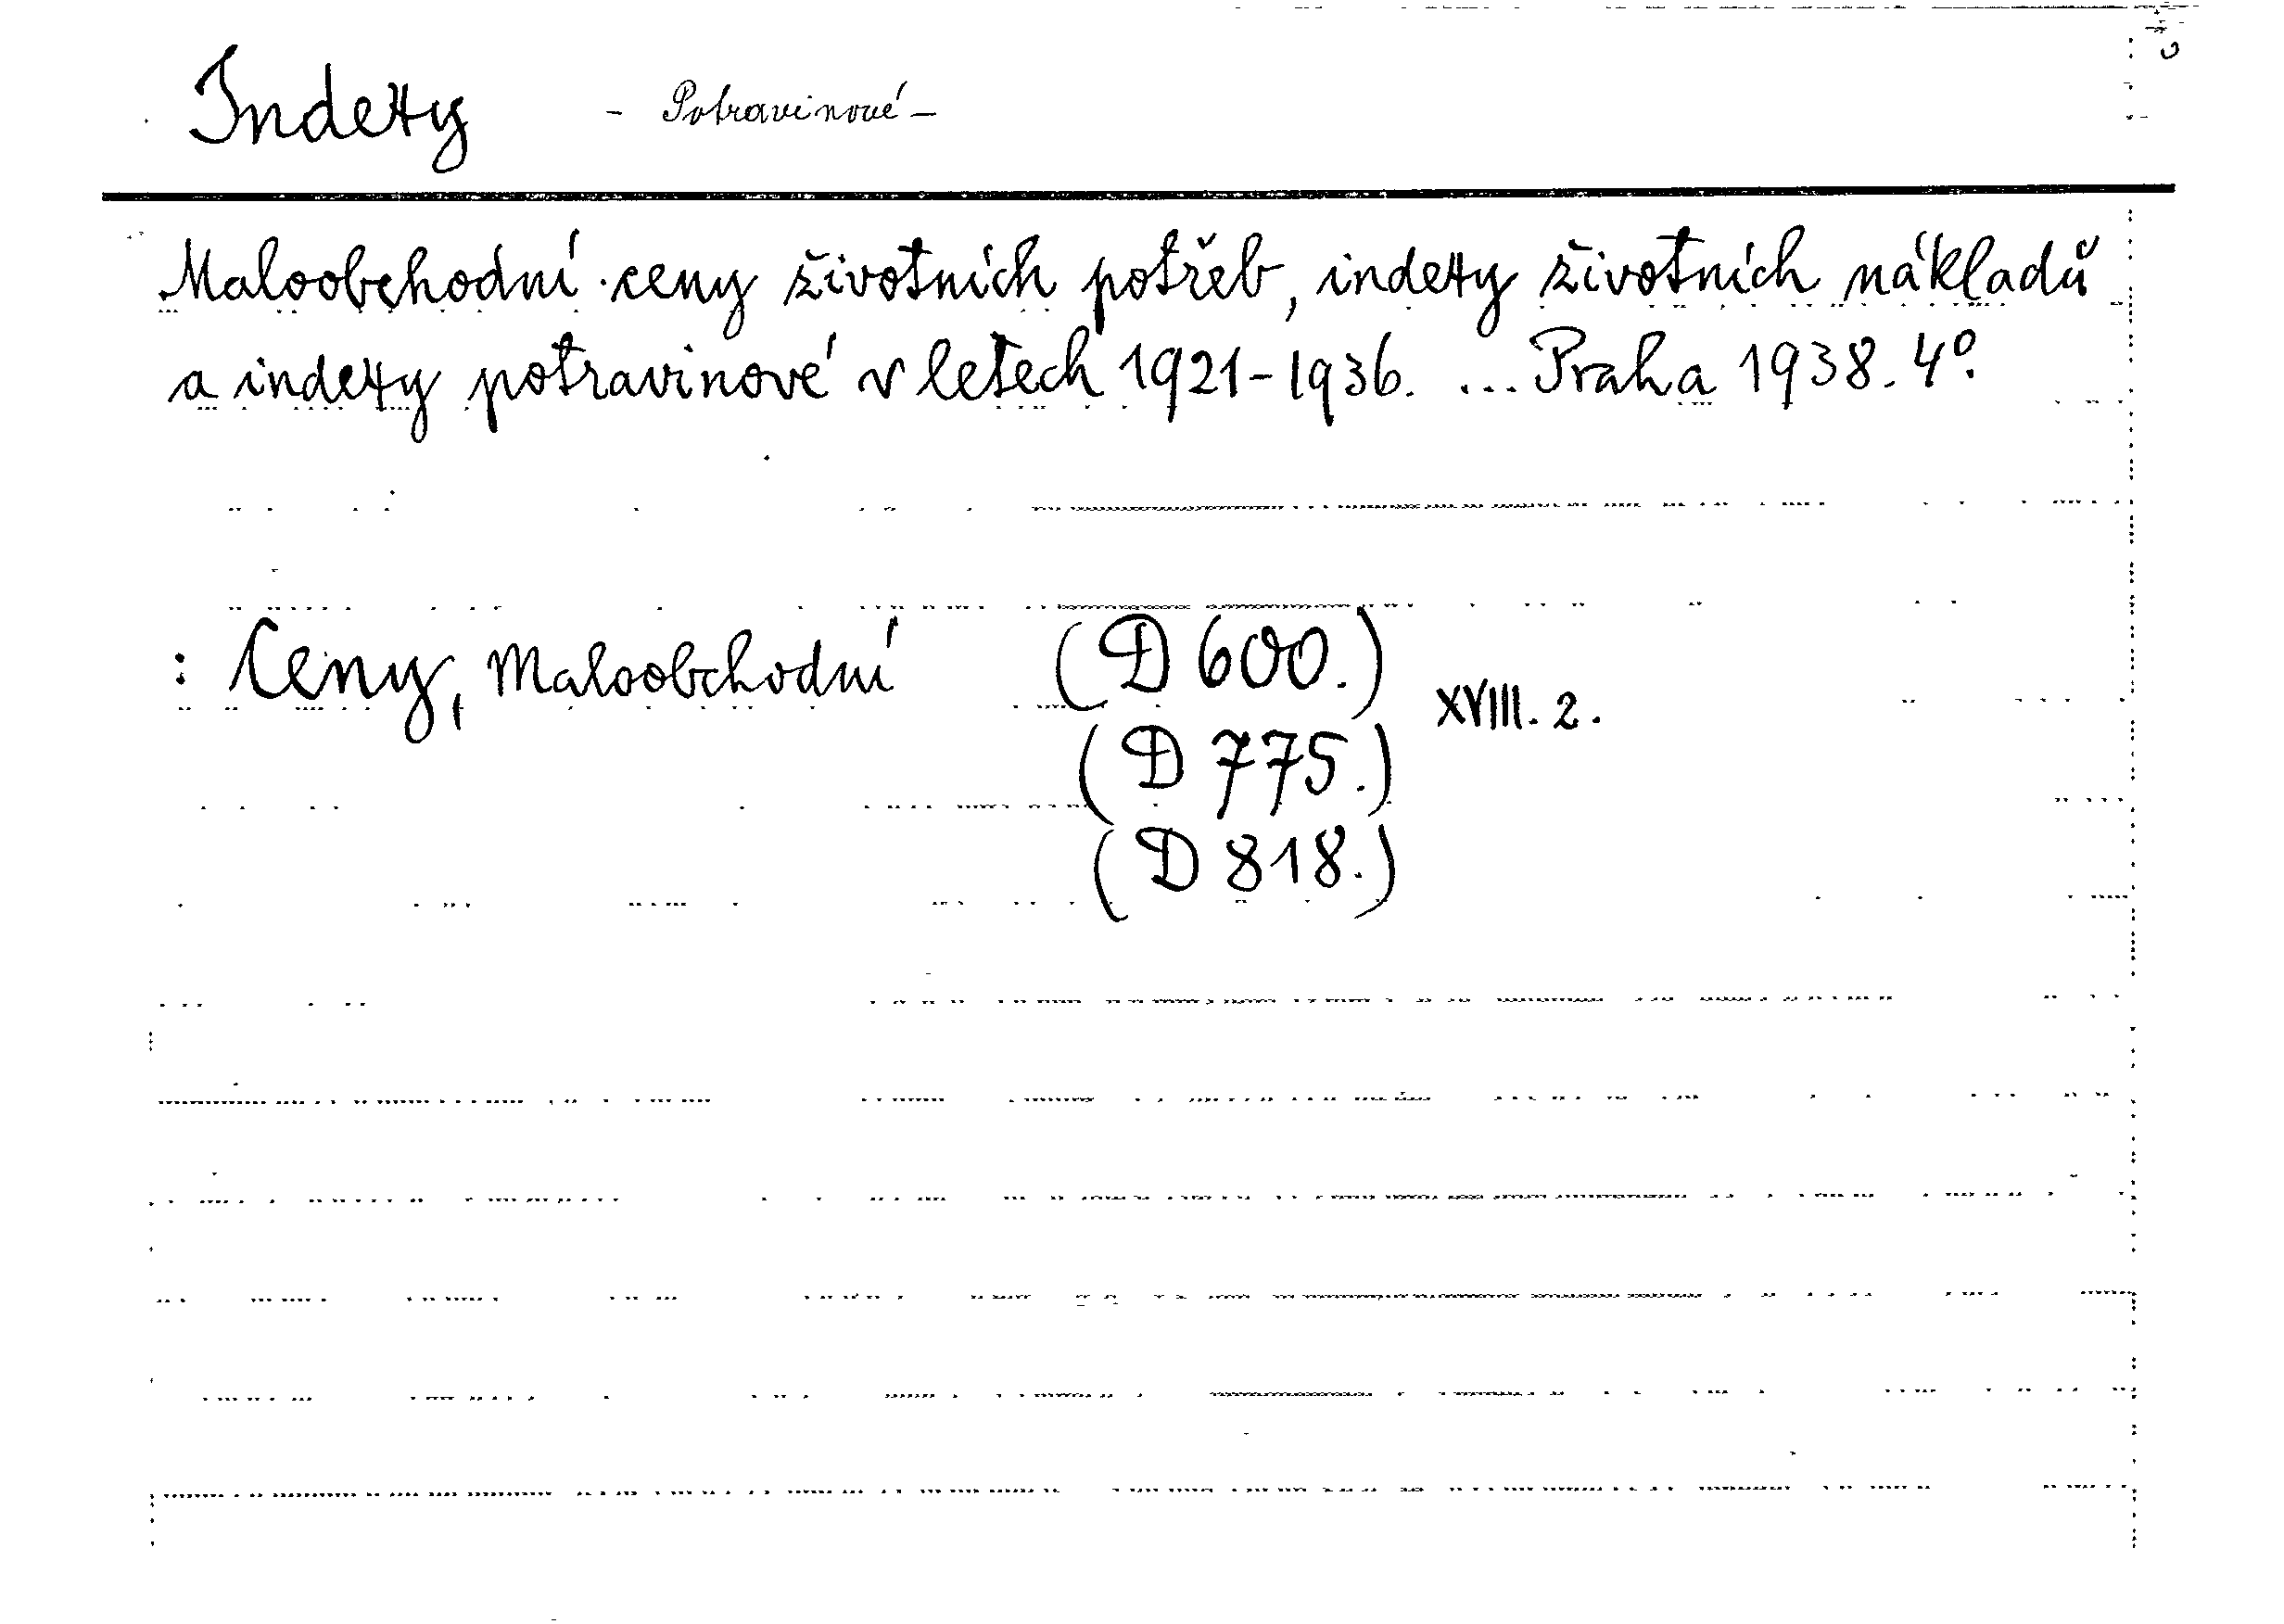 Indexy - Potravinové -
Maloobchodní ceny životních potřeb, indexy životních nákladů
a indexy potravinové v letech 1921-1936. ... Praha 1938. 4°.
: Ceny, Maloobchodní (D 600.)
XVIII. 2.
(D 775.)
(D 818.)